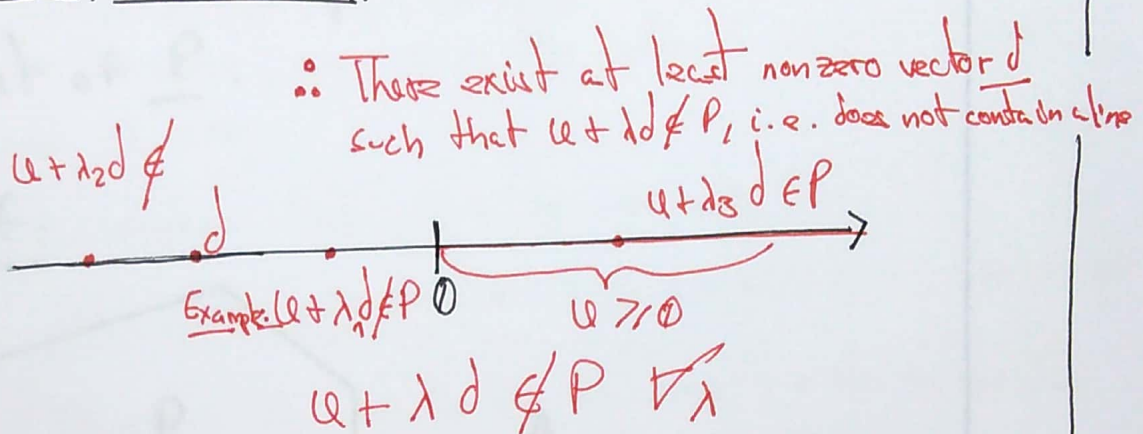 ∴ There exist at least nonzero vector d
such that u + λd ∉ P, i.e. does not contain a line
u + λ₂d ∉
d
u + λ₃ d ∈ P
Example: u + λ₁d ∉ P
0
u ⩾ 0
u + λ d ∉ P ∀λ